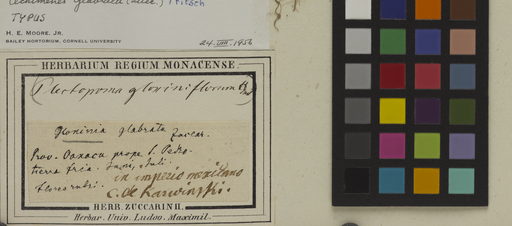 Achimenes glabrata (Zucc.) Fritsch
TYPUS
H. E. MOORE, JR.
BAILEY HORTORIUM, CORNELL UNIVERSITY
24. VIII. 1956
HERBARIUM REGIUM MONACENSE.
(Plectopoma gloxiniflorum
Gloxinia glabrata Zuccar.
Prov. Oaxaca prope S. Pedro
tierra fria. Juni, Juli.
flores rubri.
in imperio mexicano
C. de Karwinski.
HERB. ZUCCARINII.
Herbar. Univ. Ludov. Maximil.